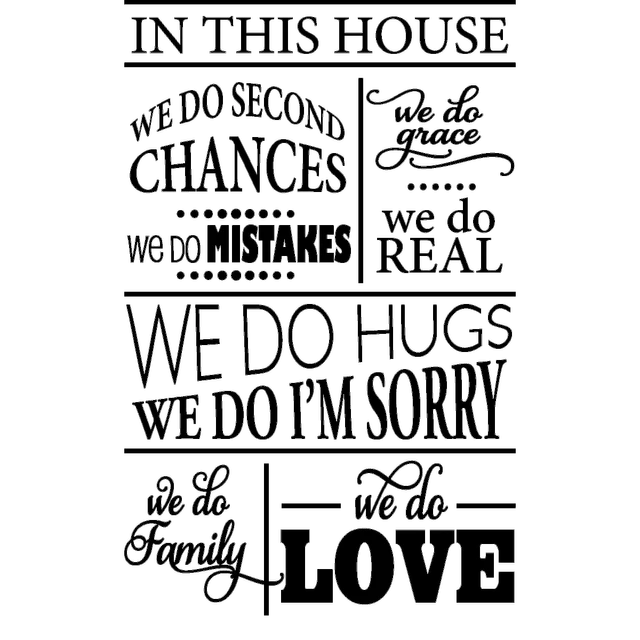 IN THIS HOUSE
WE DO SECOND
CHANCES
we do
grace
we do MISTAKES
we do
REAL
WE DO HUGS
WE DO I'M SORRY
we do
Family
we do
LOVE